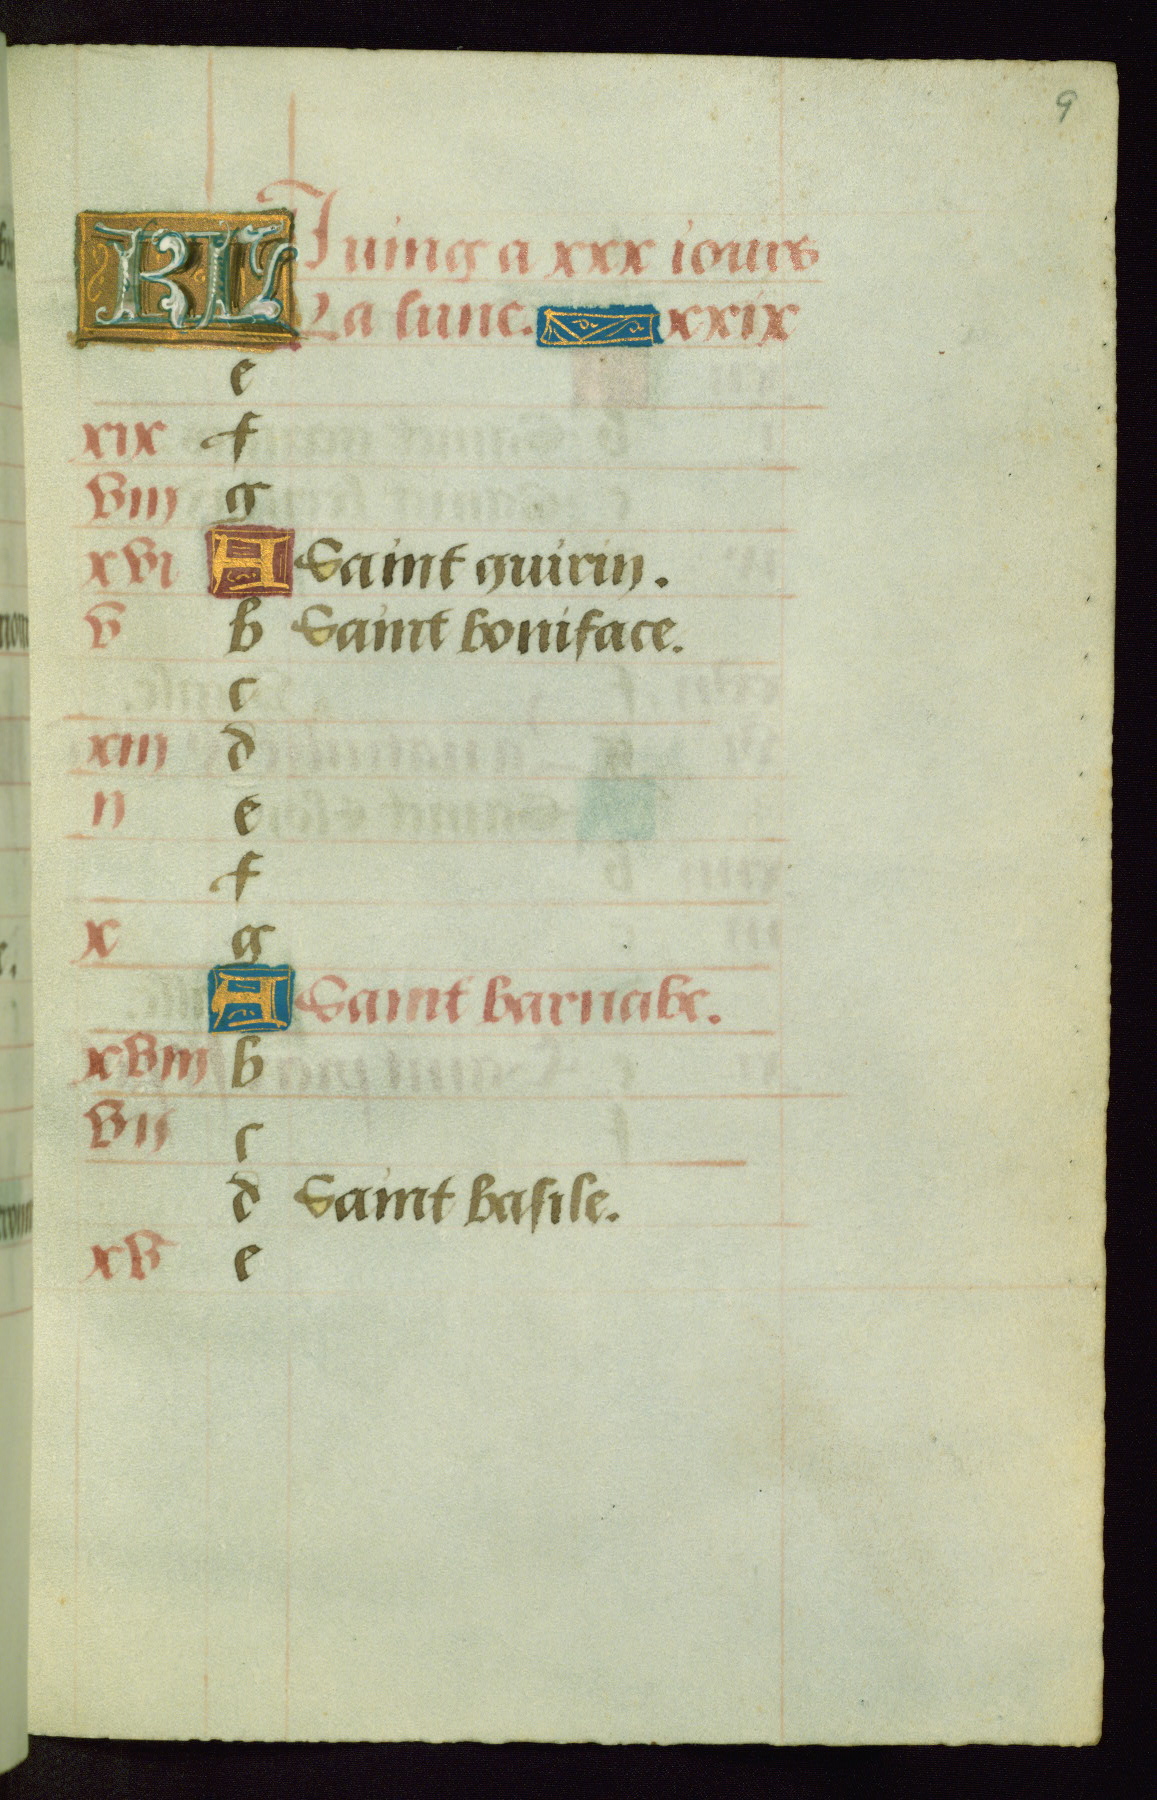 9
KL Juing a xxx iours
La lune. xxix
e
xix f
viii g
xvi A Saint quirin.
v b Saint boniface.
c
xiii d
ii e
f
x g
A Saint barnabe.
xviii b
vii c
d Saint basile.
xv e